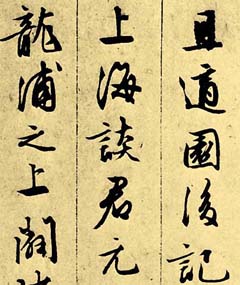 且適園後記
上海談君元
龍浦之上闢